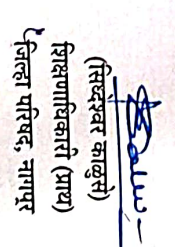 (सिध्देश्वर काळुसे)
शिक्षणाधिकारी (प्राथ)
जिल्हा परिषद, नागपूर